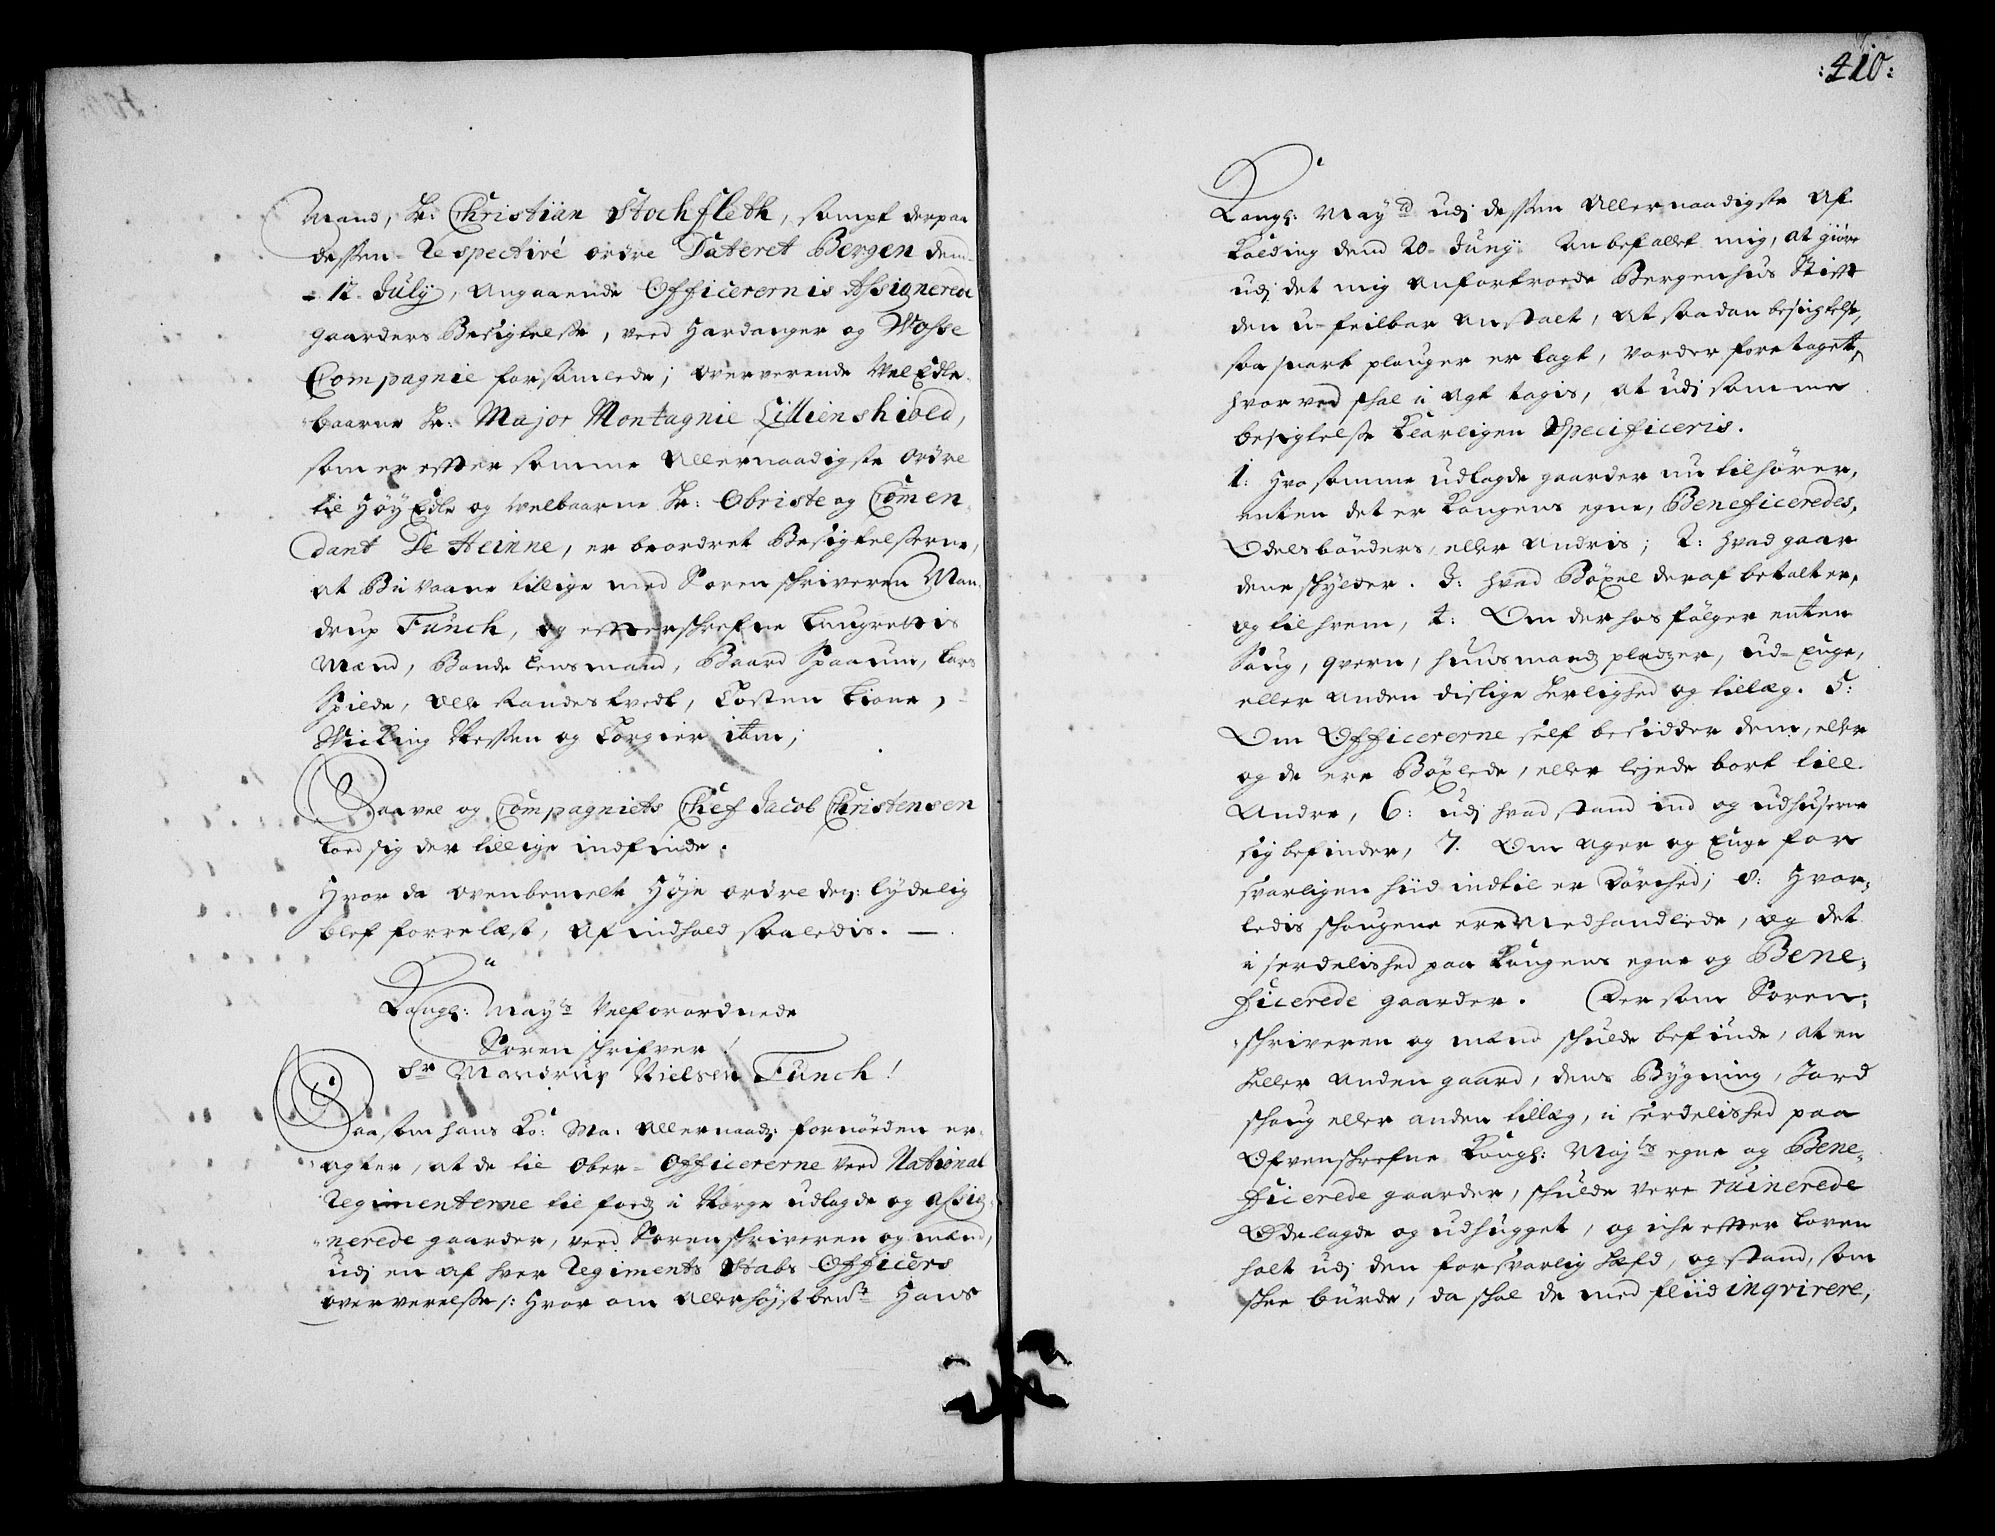 Mand, Hr: Christian Stochfleth, sampt derpaa
dessen Respectivé ordre Dateret Bergen dend
12 July, Angaaende Officerernis Assignerede
gaarders Besigtelsse, ved Hardanger og Vosse
Compagnie forsamlede; oververende VelEdle
baarne Hr: Major Montagnie Lillienshiold,
som er effter samme Allernaadigste ordre
til HöyEdle og Velbaarne Hr: Obriste og Comen-
dant De Heinne, er beordret Besigtelsserne,
at Bivaane tillige med Sorenskriveren Man-
drup Fünch, og effterskrefne Laugrettis
Mænd, Bonde Lensmand, Baard Spaaum, Lars
Spilde, Tosten Lione,
Vicking Nessen og Torgier ibm;
Saavel og Compagniets Chef Jacob Christensen
lod sig der tillige indfinde.
Hvor da ovenbemelte Höje ordre lydelig
blef forrelæst, Af indhold saaledis. —
Kongl: Mayts Velforordnede
Sorenschrifver!
Sr Mandrup Nielsen Fünch!
Saasom hans Ko: Ma: Allernaadj: fornöeden er-
agter, at de til Ober-Officererne ved National
Regimenterne til fods i Norge udlagde og assig-
nerede gaarder, ved Sorenskriveren og mænd,
udj en af hver Regiments Stabs Officers
oververelsse /: Hvor om Allerhöjstbente Hans
:410:
Kongl: Mayts udj dessen Allernaadigste Af
Kolding dend 20 Junij Anbefallet mig, at giöre
udj det mig Anfortroede Bergenhus Stift
den u-feilbar Anstalt, At saadan besigtelse,
saa snart plouger er lagt, vorder foretaget,
hvorved skal i Agt tagis, at udj samme
besigtelsse Klarligen Specificeris.
1: Hvo samme udlagde gaarder nu tilhörer,
enten det er Kongens egne, Beneficeredes,
Odelsbönders, eller Andris; 2: Hvad gaar-
dene skylder. 3: hvad Böxel deraf betalt er,
og til hvem, 4: Om der hos fölger enten
Saug, qvern, huusmands pladzer, ud-Enge,
eller Anden dislige herlighed og tillæg. 5:
Om Officererne self besidder dem, eller
og de ere Böxlede, eller lejede bort till
Andre, 6: udj hvad stand ind og udhuserne
sig befinder, 7. Om Ager og Enge for-
svarligen hiid indtil er dörched; 8: Hvor-
ledis skougene ere Medhandlede, og det
i serdelished paa Kongens egne og Bene-
ficerede gaarder. Dersom Soren-
skriveren og mænd skulde befinde, at en
heller Anden gaard, dens Bygning, Jord
skoug eller anden tillæg, i serdelished paa
Ofvenskrefne Kongl: Mayts egne og Bene-
ficerede gaarder, skulde vere ruinerede
Ödelagde og udhugget, og iche effter loven
holt udj den forsvarlig hæfd, og stand, som
skee burde, da skal de med fliid inqvirere,